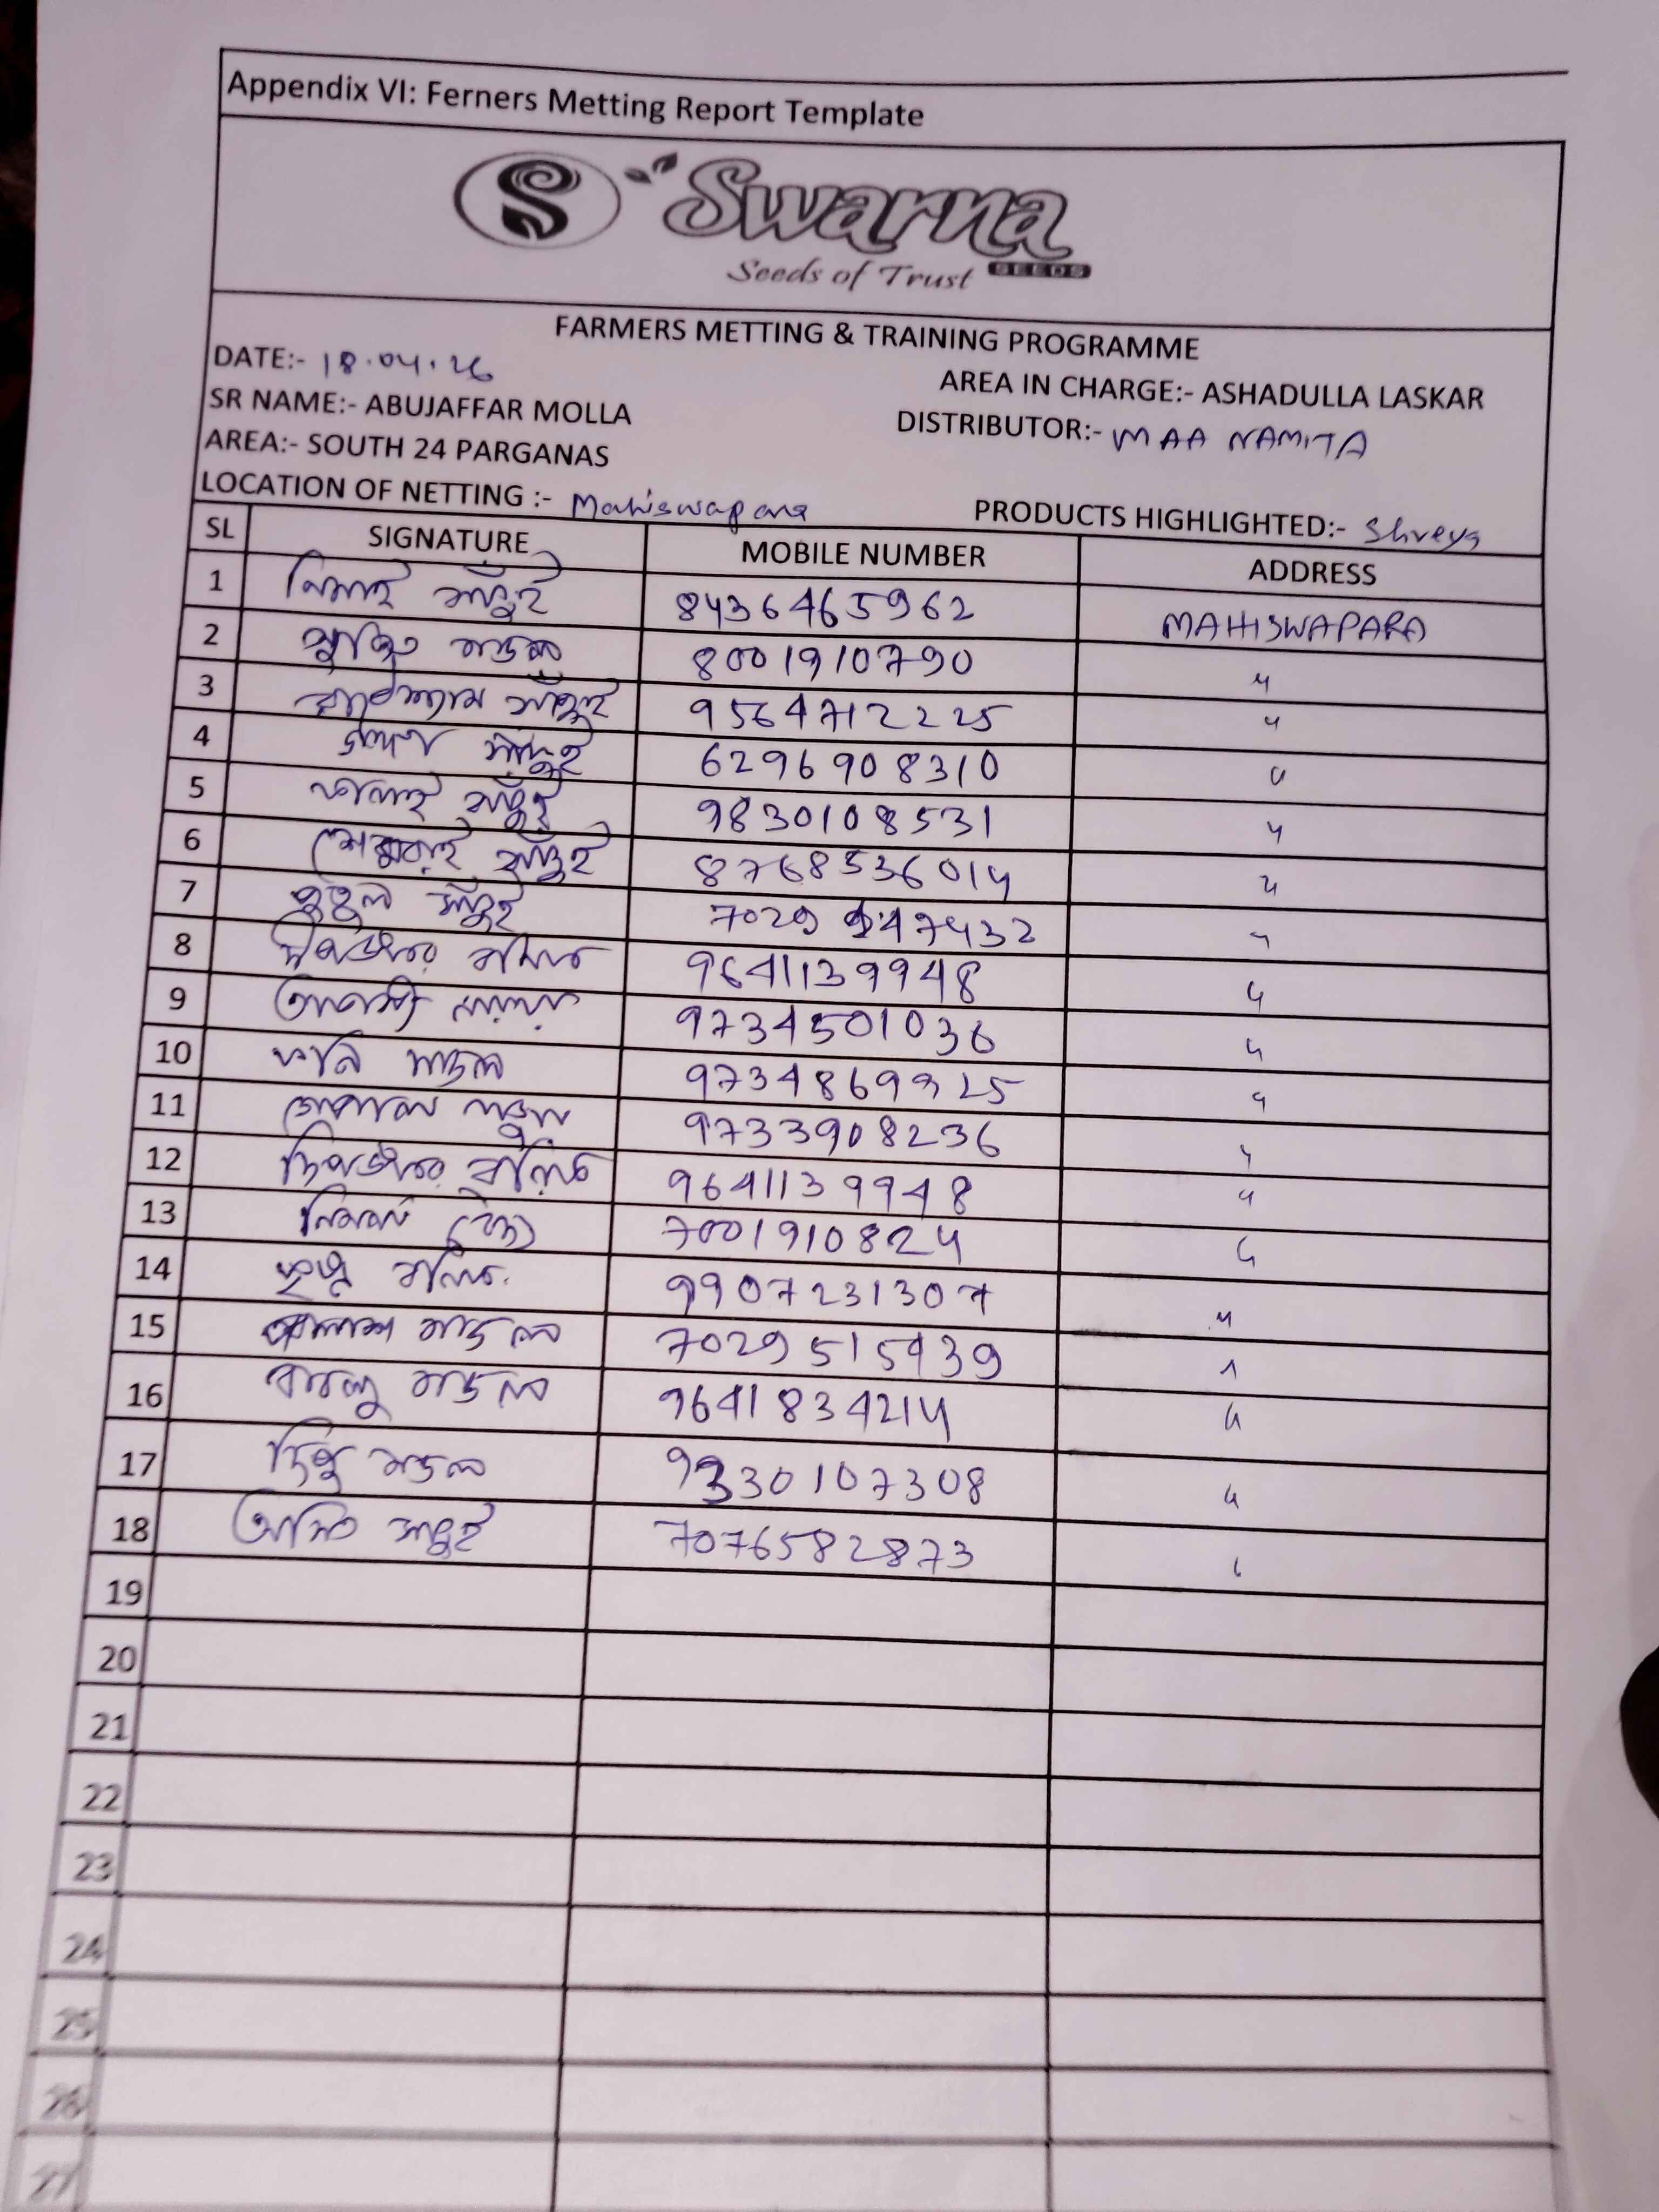 Appendix VI: Ferners Metting Report Template
S Swarna
Seeds of Trust SEEDS
FARMERS METTING & TRAINING PROGRAMME
DATE:- 18.04.26
AREA IN CHARGE:- ASHADULLA LASKAR
SR NAME:- ABUJAFFAR MOLLA
DISTRIBUTOR:- MAA NAMITA
AREA:- SOUTH 24 PARGANAS
LOCATION OF NETTING :- Mahiswapara PRODUCTS HIGHLIGHTED:- Shreya
SL SIGNATURE MOBILE NUMBER ADDRESS
1 নিমাই সাঁফুই 8436465962 MAHISWAPARA
2 সুজিত মন্ডল 8001910790 "
3 রাধেশ্যাম সাঁফুই 9564712225 "
4 সাঁফুই 6296908310 "
5 কানাই সাঁফুই 9830108531 "
6 সাঁফুই 8768536014 "
7 পুতুল সাঁফুই 7029947432 "
8 9641139948 "
9 9734501036 "
10 ফনি মন্ডল 9734869325 "
11 গোপাল 9733908236 "
12 9641139948 "
13 7001910824 "
14 9907231307 "
15 মন্ডল 7029515939 "
16 বাবলু মন্ডল 9641834214 "
17 মন্ডল 9330107308 "
18 অসিত সাফুই 7076582873 "
19
20
21
22
23
24
25
26
27